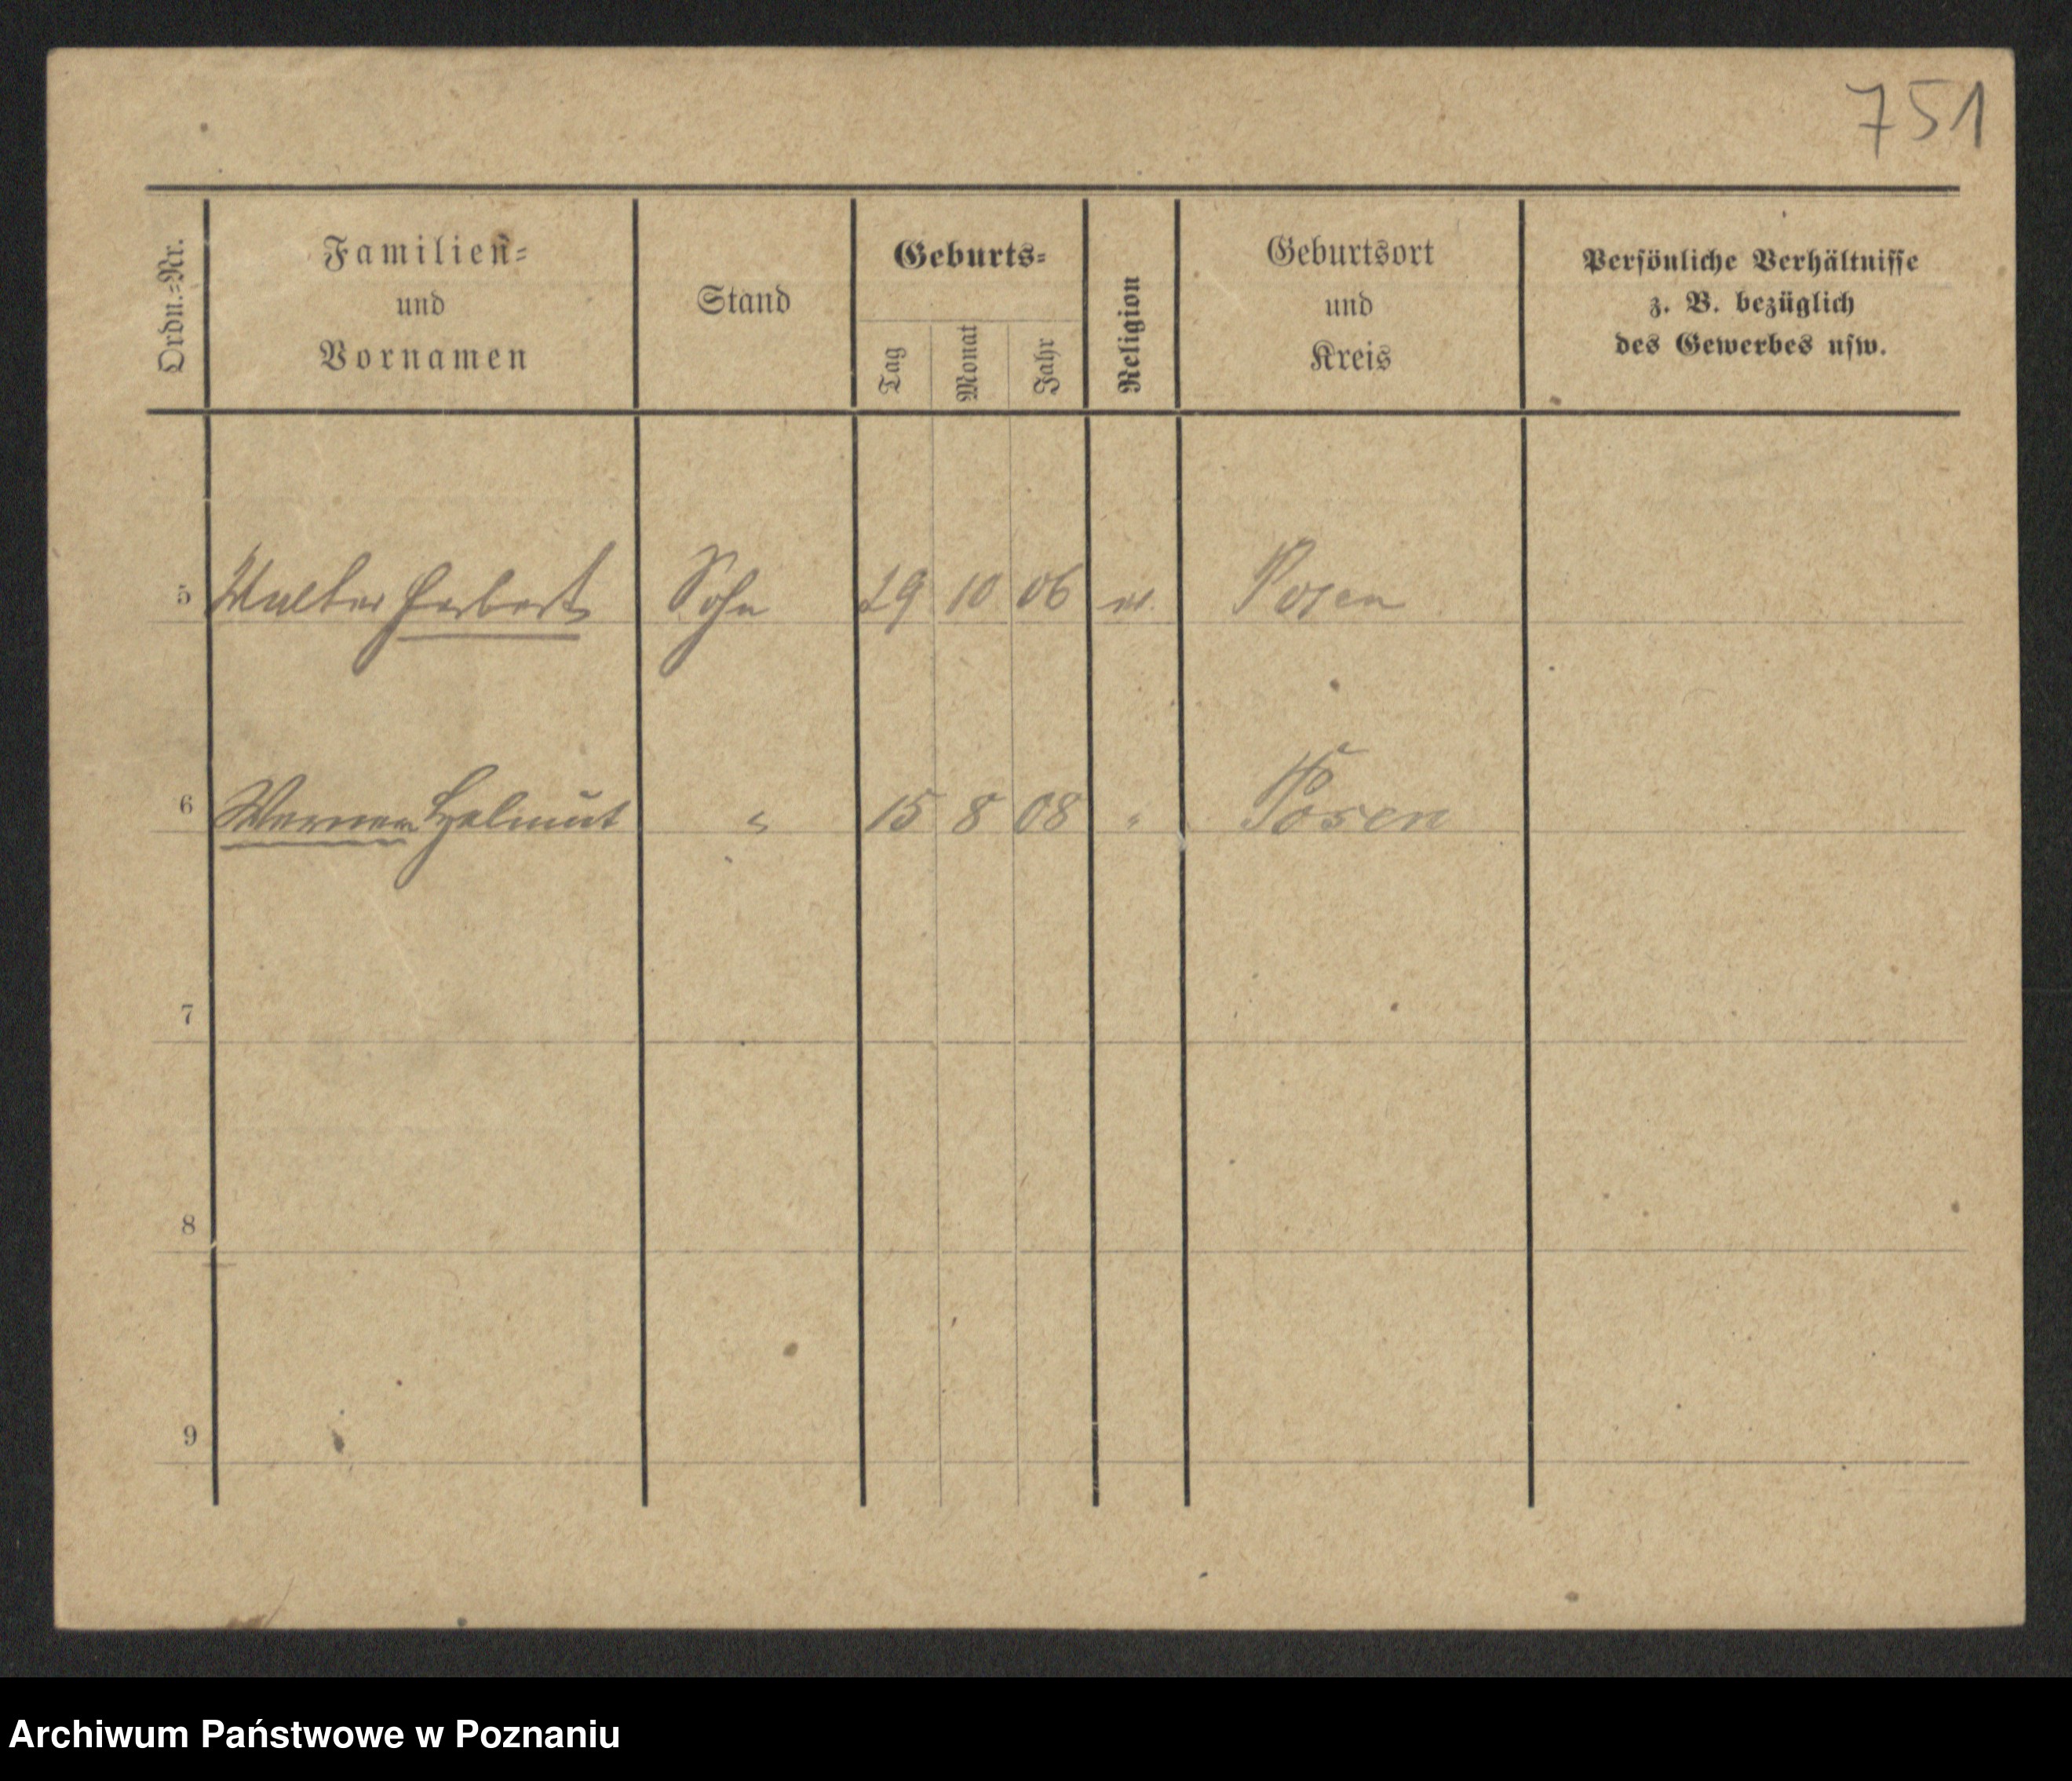 751
Ordn.=Nr.
Familien=
und
Vornamen
Stand
Geburts=
Tag
Monat
Jahr
Religion
Geburtsort
und
Kreis
Persönliche Verhältnisse
z. B. bezüglich
des Gewerbes usw.
5 Walter Herbert Sohn 29 10 06 Posen
6 Werner Helmut " 15 8 08 " Posen
7
8
9
Archiwum Państwowe w Poznaniu